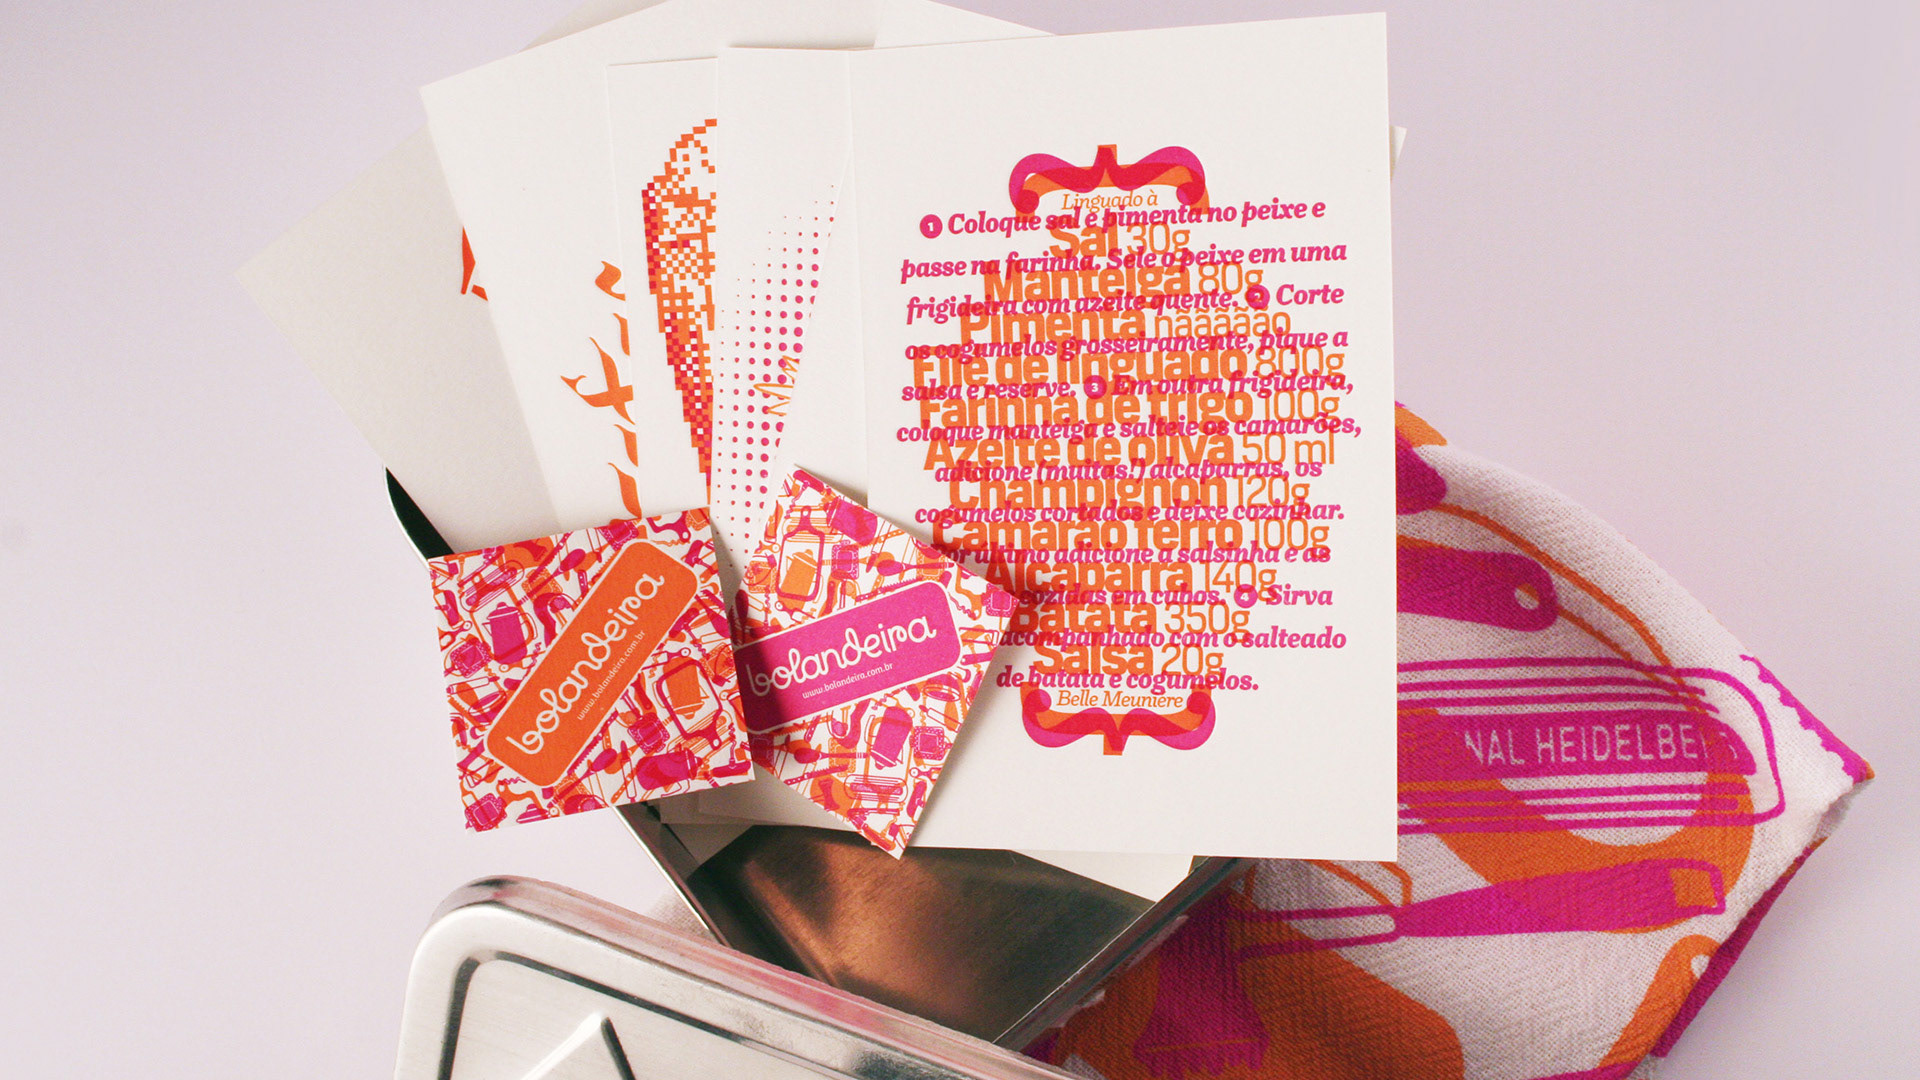 Linguado à
Sal 30g
Manteiga 80g
Pimenta nãããããão
Filé de linguado 800g
Farinha de trigo 100g
Azeite de oliva 50 ml
Champignon 120g
Camarão ferro 100g
Alcaparra 140g
Batata 350g
Salsa 20g
Belle Meuniere
1 Coloque sal e pimenta no peixe e
passe na farinha. Sele o peixe em uma
frigideira com azeite quente. 2 Corte
os cogumelos grosseiramente, pique a
salsa e reserve. 3 Em outra frigideira,
coloque manteiga e salteie os camarões,
adicione (muitas!) alcaparras, os
cogumelos cortados e deixe cozinhar.
último adicione a salsinha e as
cozidas em cubos. 4 Sirva
acompanhado com o salteado
de batata e cogumelos.
bolandeira
www.bolandeira.com.br
bolandeira
www.bolandeira.com.br
NAL HEIDELBE